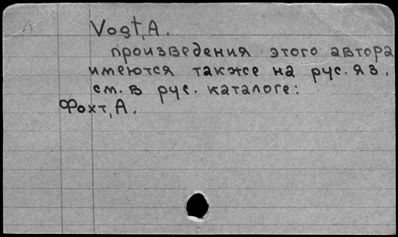 А
Vogt, A.
произведения этого автора
имеются также на рус. яз.
см. в рус. каталоге:
Фохт, А.